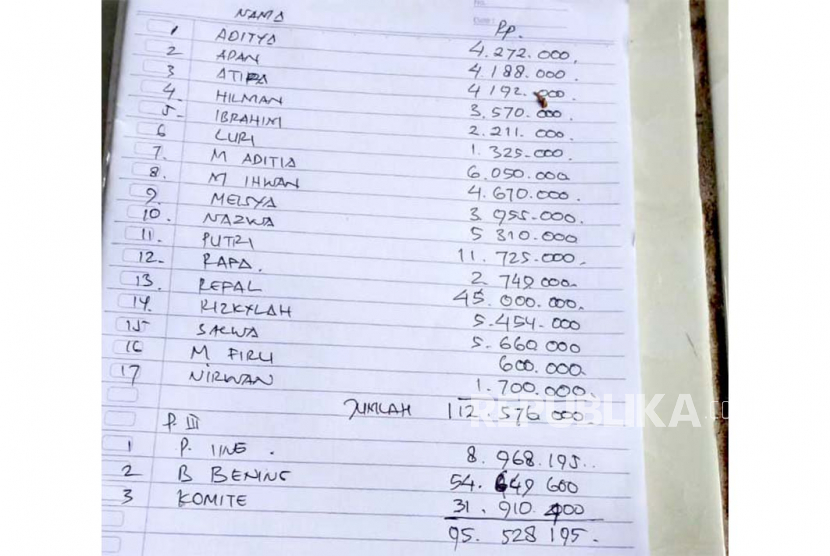 No.
Date
NAMA Rp.
1 ADITYA 4.272.000,
2 APAN 4.188.000.
3 ATIPA 4.192.000
4. HILMAN 3.570.000.
5. IBRAHIM 2.211.000.
6 LURI 1.325.000.
7. M ADITIA 6.050.000
8. M IHWAN 4.670.000.
9. MELSYA 3.955.000.
10. NAZWA 5 310.000
11. PUTRI 11.725.000.
12. RAPA. 2 749 000.
13. REPAL 45.000.000.
14. RIZKYLAH 5.454.000
15 SALWA 5.660 000
16 M FIRLI 600.000.
17 NIRWAN 1.700.000.
JUMLAH 112.576 000
REPUBLIKA.co
P. III
1 P. IINE . 8.968.195..
2 B BENING 54.649 600
3 KOMITE 31.910 400
95. 528 195.